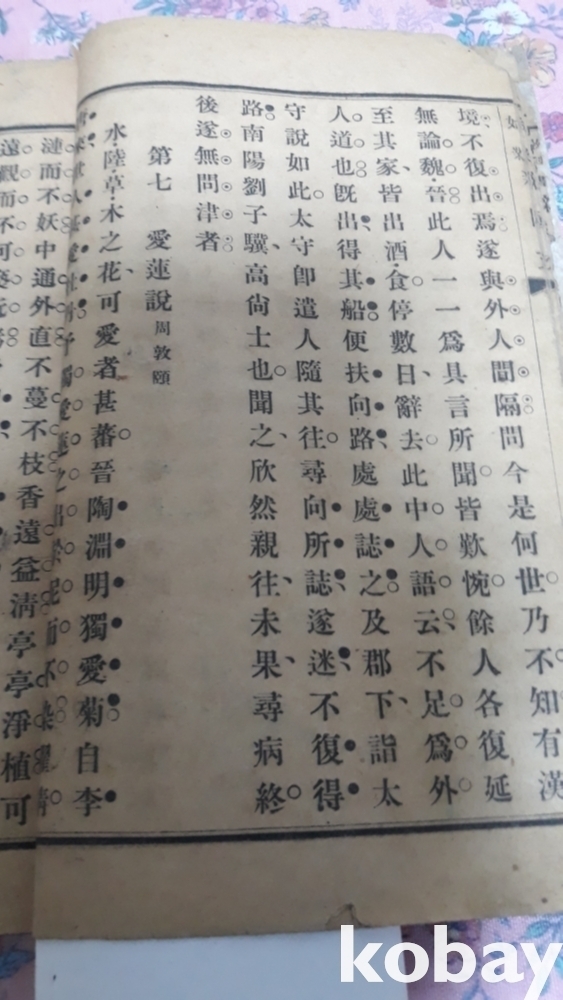 境不復出焉遂與外人間隔問今是何世乃不知有漢
無論魏晉此人一一爲具言所聞皆歎惋餘人各復延
至其家皆出酒食停數日辭去此中人語云不足爲外
人道也旣出得其船便扶向路處處誌之及郡下詣太
守說如此太守卽遣人隨其往尋向所誌遂迷不復得
路南陽劉子驥高尙士也聞之欣然親往未果尋病終
後遂無問津者
第七 愛蓮說 周敦頤
水陸草木之花可愛者甚蕃晉陶淵明獨愛菊自李
人甚愛獨愛蓮之出而不染濯淸
漣而不妖中通外直不蔓不枝香遠益淸亭亭淨植可
遠觀而不可
kobay